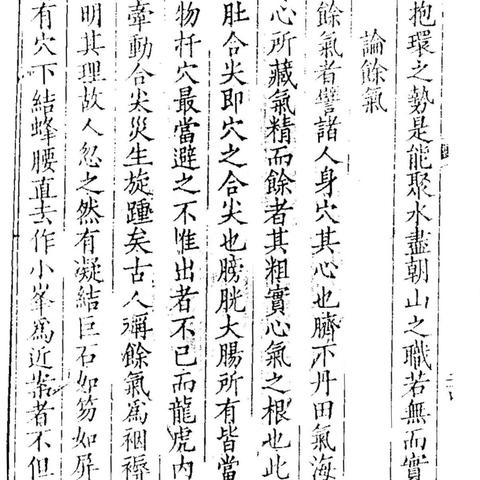 抱環之勢是能聚水盡朝山之職若無而實
論餘氣
餘氣者譬諸人身穴其心也臍下丹田氣海
心所藏氣精而餘者其粗實心氣之根也此
肚合尖即穴之合尖也膀胱大腸所有皆當
物扦穴最當避之不惟出者不已而龍虎内
牽動合尖災生旋踵矣古人稱餘氣為裀褥
明其理故人忽之然有凝結巨石如笏如屏
有穴下結蜂腰直去作小峯為近案者不但